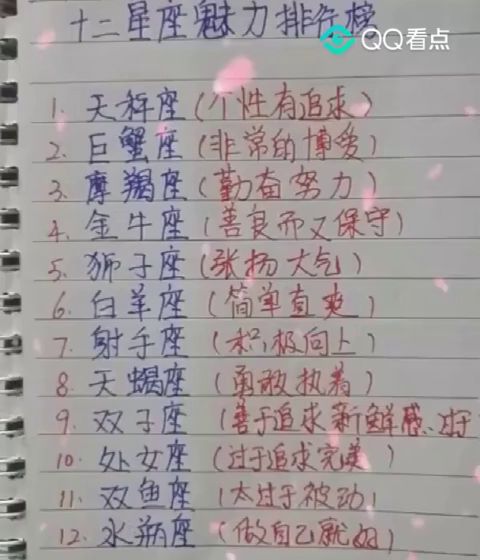 十二星座魅力排行榜
QQ看点
1. 天秤座(个性有追求)
2. 巨蟹座(非常的博爱)
3. 摩羯座(勤奋努力)
4. 金牛座(善良而又保守)
5. 狮子座(张扬大气)
6. 白羊座(简单直爽)
7. 射手座(积极向上)
8. 天蝎座(勇敢执着)
9. 双子座(善于追求新鲜感、过于
10. 处女座(过于追求完美)
11. 双鱼座(太过于被动)
12. 水瓶座(做自己就好)